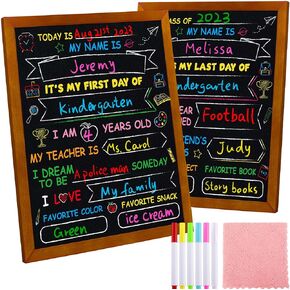 TODAY IS Aug 21st 2023
MY NAME IS
Jeremy
IT'S MY FIRST DAY OF
Kindergarten
I AM 4 YEARS OLD
MY TEACHER IS Ms. Carol
I DREAM TO BE A police man SOMEDAY
I LOVE My family
FAVORITE COLOR FAVORITE SNACK
Green ice Cream
CLASS OF 2023
MY NAME IS
Melissa
FIRST DAY OF
Kindergarten
YEARS OLD
HEAR
Football
FRIEND'S
IS Judy
BE
FAVORITE BOOK
Story books